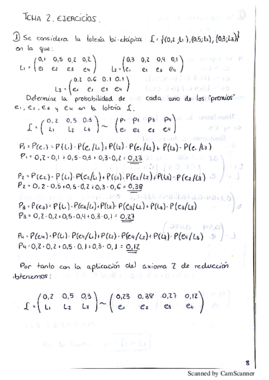 TEMA 2. EJERCICIOS.
① Se considera la lotería bi-etápica I = {(0,2, L₁), (0,5, L₂), (0,3, L₃)}
en la que:
L₁ = (0,1 0,5 0,2 0,2) L₂ = (0,3 0,2 0,4 0,1)
e₁ e₂ e₃ e₄ e₁ e₂ e₃ e₄
L₃ = (0,2 0,6 0,1 0,1)
e₁ e₂ e₃ e₄
Determine la probabilidad de cada uno de los "premios"
e₁, e₂, e₃ y e₄ en la lotería I.
I = (0,2 0,5 0,3) ~ (P₁ P₂ P₃ P₄)
L₁ L₂ L₃ e₁ e₂ e₃ e₄
P₁ = P(e₁) = P(L₁) · P(e₁/L₁) + P(L₂) · P(e₁/L₂) + P(L₃) · P(e₁/L₃)
P₁ = 0,2 · 0,1 + 0,5 · 0,3 + 0,3 · 0,2 = 0,23
P₂ = P(e₂) = P(L₁) · P(e₂/L₁) + P(L₂) · P(e₂/L₂) + P(L₃) · P(e₂/L₃)
P₂ = 0,2 · 0,5 + 0,5 · 0,2 + 0,3 · 0,6 = 0,38
P₃ = P(e₃) = P(L₁) · P(e₃/L₁) + P(L₂) · P(e₃/L₂) + P(L₃) · P(e₃/L₃)
P₃ = 0,2 · 0,2 + 0,5 · 0,4 + 0,3 · 0,1 = 0,27
P₄ = P(e₄) = P(L₁) · P(e₄/L₁) + P(L₂) · P(e₄/L₂) + P(L₃) · P(e₄/L₃)
P₄ = 0,2 · 0,2 + 0,5 · 0,1 + 0,3 · 0,1 = 0,12
Por tanto con la aplicación del axioma 2 de reducción
obtenemos:
I = (0,2 0,5 0,3) ~ (0,23 0,38 0,27 0,12)
L₁ L₂ L₃ e₁ e₂ e₃ e₄
8
Scanned by CamScanner